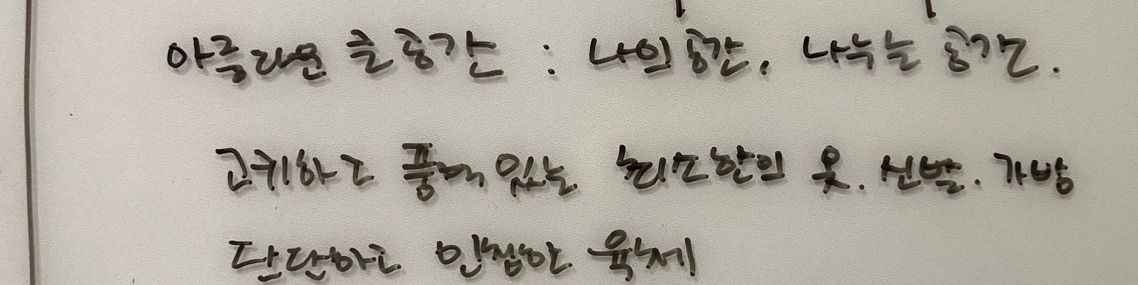 아름다운 큰 공간 : 나의 공간, 나누는 공간.
고귀하고 품격 있는 최소한의 옷. 신발. 가방
단단하고 민첩한 육체